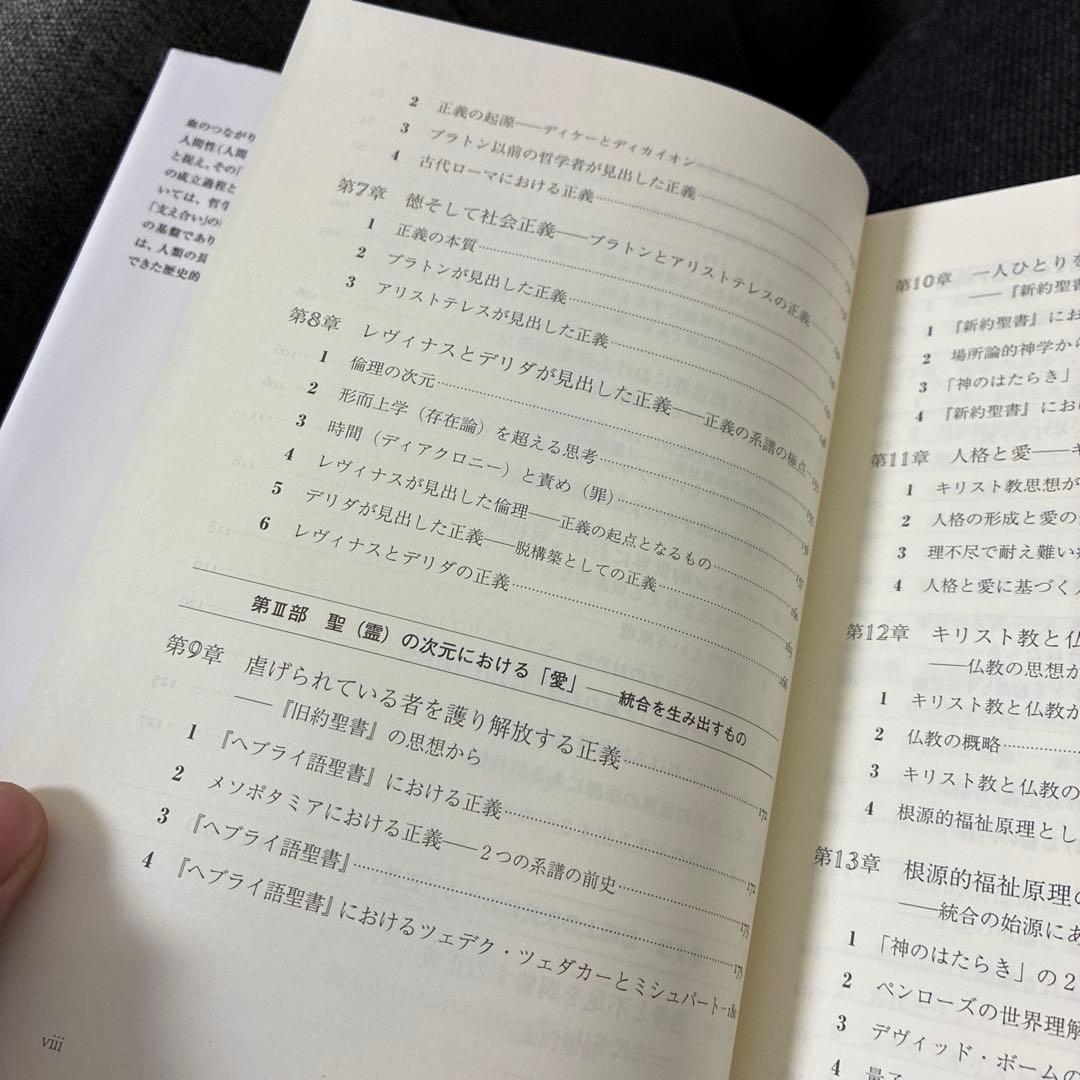 血のつながり
人間性(人間
と捉え、その「
の成立過程と
いては、哲学
「支え合い」の
の基盤であり
は、人類の長
できた歴史的
2 正義の起源——ディケーとディカイオン
3 プラトン以前の哲学者が見出した正義
4 古代ローマにおける正義
第7章 徳そして社会正義——プラトンとアリストテレスの正義
1 正義の本質
2 プラトンが見出した正義
3 アリストテレスが見出した正義
第8章 レヴィナスとデリダが見出した正義——正義の系譜の極点
1 倫理の次元
2 形而上学(存在論)を超える思考
3 時間(ディアクロニー)と責め(罪)
4 レヴィナスが見出した倫理——正義の起点となるもの
5 デリダが見出した正義——脱構築としての正義
6 レヴィナスとデリダの正義 166
第Ⅲ部 聖(霊)の次元における「愛」——統合を生み出すもの
第9章 虐げられている者を護り解放する正義 172
——『旧約聖書』の思想から
1 『ヘブライ語聖書』における正義 172
2 メソポタミアにおける正義——2つの系譜の前史 173
3 『ヘブライ語聖書』 175
4 『ヘブライ語聖書』におけるツェデク・ツェダカーとミシュパート 180
viii
第10章 一人ひとりを
——『新約聖書
1 『新約聖書』にお
2 場所論的神学から
3 「神のはたらき」
4 『新約聖書』にお
第11章 人格と愛——キ
1 キリスト教思想が
2 人格の形成と愛の
3 理不尽で耐え難い
4 人格と愛に基づく
第12章 キリスト教と仏
——仏教の思想が
1 キリスト教と仏教が
2 仏教の概略
3 キリスト教と仏教の
4 根源的福祉原理とし
第13章 根源的福祉原理の
——統合の始源にあ
1 「神のはたらき」の2
2 ペンローズの世界理解
3 デヴィッド・ボームの
4 量子